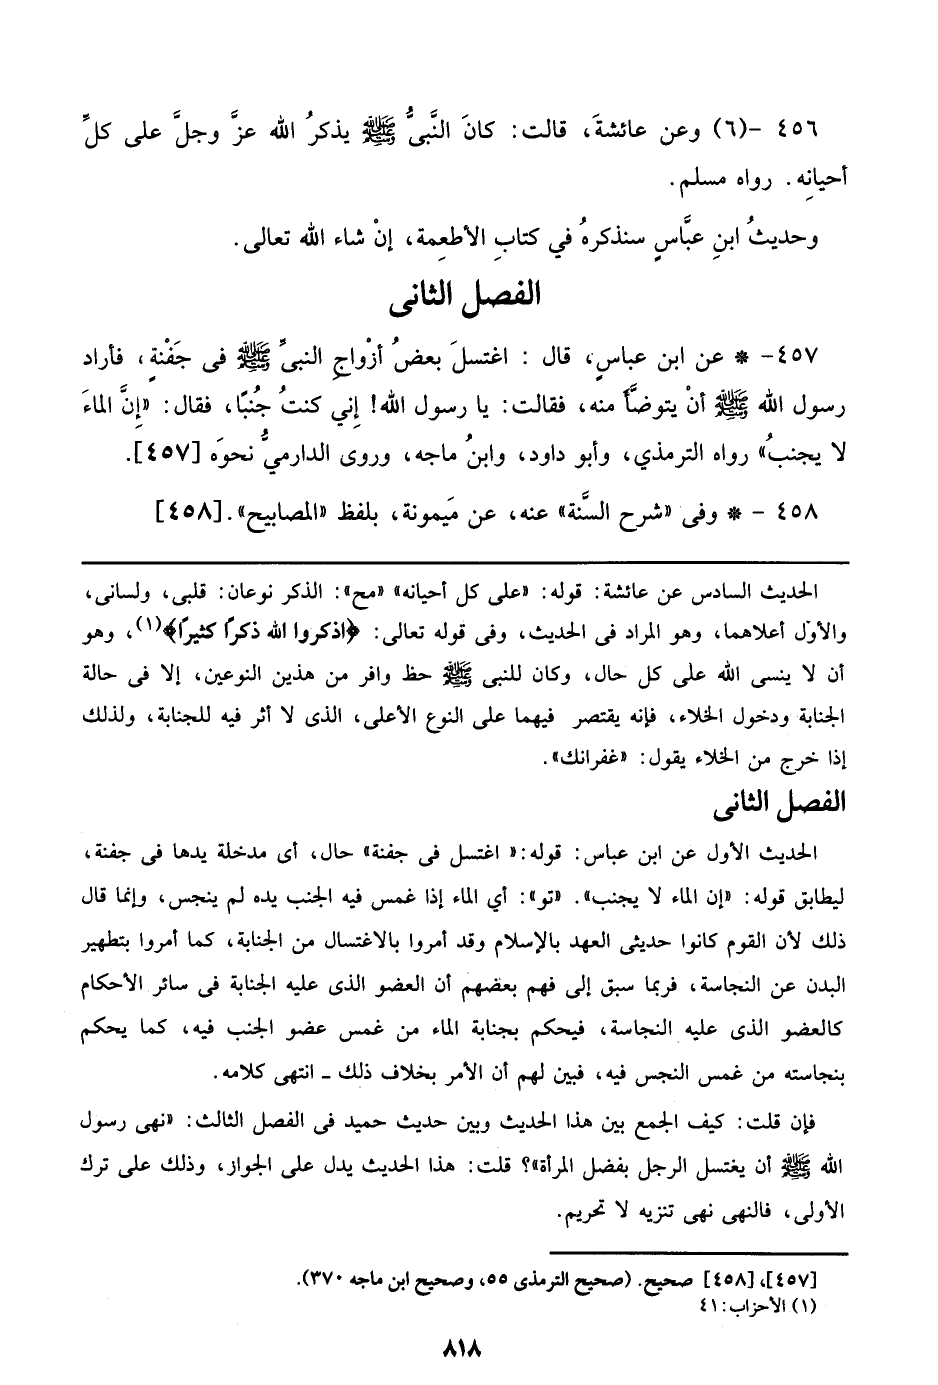 ٤٥٦ -(٦) وعن عائشةَ، قالت: كانَ النَّبىُّ ﷺ يذكرُ الله عزَّ وجلَّ على كلِّ
أحيانِه. رواه مسلم.
وحديثُ ابنِ عبَّاسٍ سنذكرهُ في كتابِ الأطعمِة، إنْ شاء الله تعالى.
الفصل الثانى
٤٥٧- * عن ابن عباسٍ، قال : اغتسلَ بعضُ أزْواجِ النبىِّ ﷺ فى جَفْنةٍ، فأراد
رسول الله ﷺ أنْ يتوضَّأ منه، فقالت: يا رسول الله! إِني كنتُ جُنبًا، فقال: «إِنَّ الماءَ
لا يجنبُ» رواه الترمذي، وأبو داود، وابنُ ماجه، وروى الدارميُّ نحوَه [٤٥٧].
٤٥٨ - * وفى «شرح السَّنة» عنه، عن مَيمونة، بلفظ «المصابيح».[٤٥٨]
الحديث السادس عن عائشة: قوله: «على كل أحيانه» «مح»: الذكر نوعان: قلبى، ولسانى،
والأول أعلاهما، وهو المراد فى الحديث، وفى قوله تعالى: ﴿اذكروا الله ذكرًا كثيرًا﴾(١)، وهو
أن لا ينسى الله على كل حال، وكان للنبى ﷺ حظ وافر من هذين النوعين، إلا فى حالة
الجنابة ودخول الخلاء، فإنه يقتصر فيهما على النوع الأعلى، الذى لا أثر فيه للجنابة، ولذلك
إذا خرج من الخلاء يقول: «غفرانك».
الفصل الثانى
الحديث الأول عن ابن عباس: قوله:« اغتسل فى جفنة» حال، أى مدخلة يدها فى جفنة،
ليطابق قوله: «إن الماء لا يجنب». «تو»: أي الماء إذا غمس فيه الجنب يده لم ينجس، وإنما قال
ذلك لأن القوم كانوا حديثى العهد بالإسلام وقد أمروا بالاغتسال من الجنابة، كما أمروا بتطهير
البدن عن النجاسة، فربما سبق إلى فهم بعضهم أن العضو الذى عليه الجنابة فى سائر الأحكام
كالعضو الذى عليه النجاسة، فيحكم بجنابة الماء من غمس عضو الجنب فيه، كما يحكم
بنجاسته من غمس النجس فيه، فبين لهم أن الأمر بخلاف ذلك ـ انتهى كلامه.
فإن قلت: كيف الجمع بين هذا الحديث وبين حديث حميد فى الفصل الثالث: «نهى رسول
الله ﷺ أن يغتسل الرجل بفضل المرأة»؟ قلت: هذا الحديث يدل على الجواز، وذلك على ترك
الأولى، فالنهى نهى تنزيه لا تحريم.
[٤٥٧]، [٤٥٨] صحيح. (صحيح الترمذى ٥٥، وصحيح ابن ماجه ٣٧٠).
(١) الأحزاب: ٤١
٨١٨